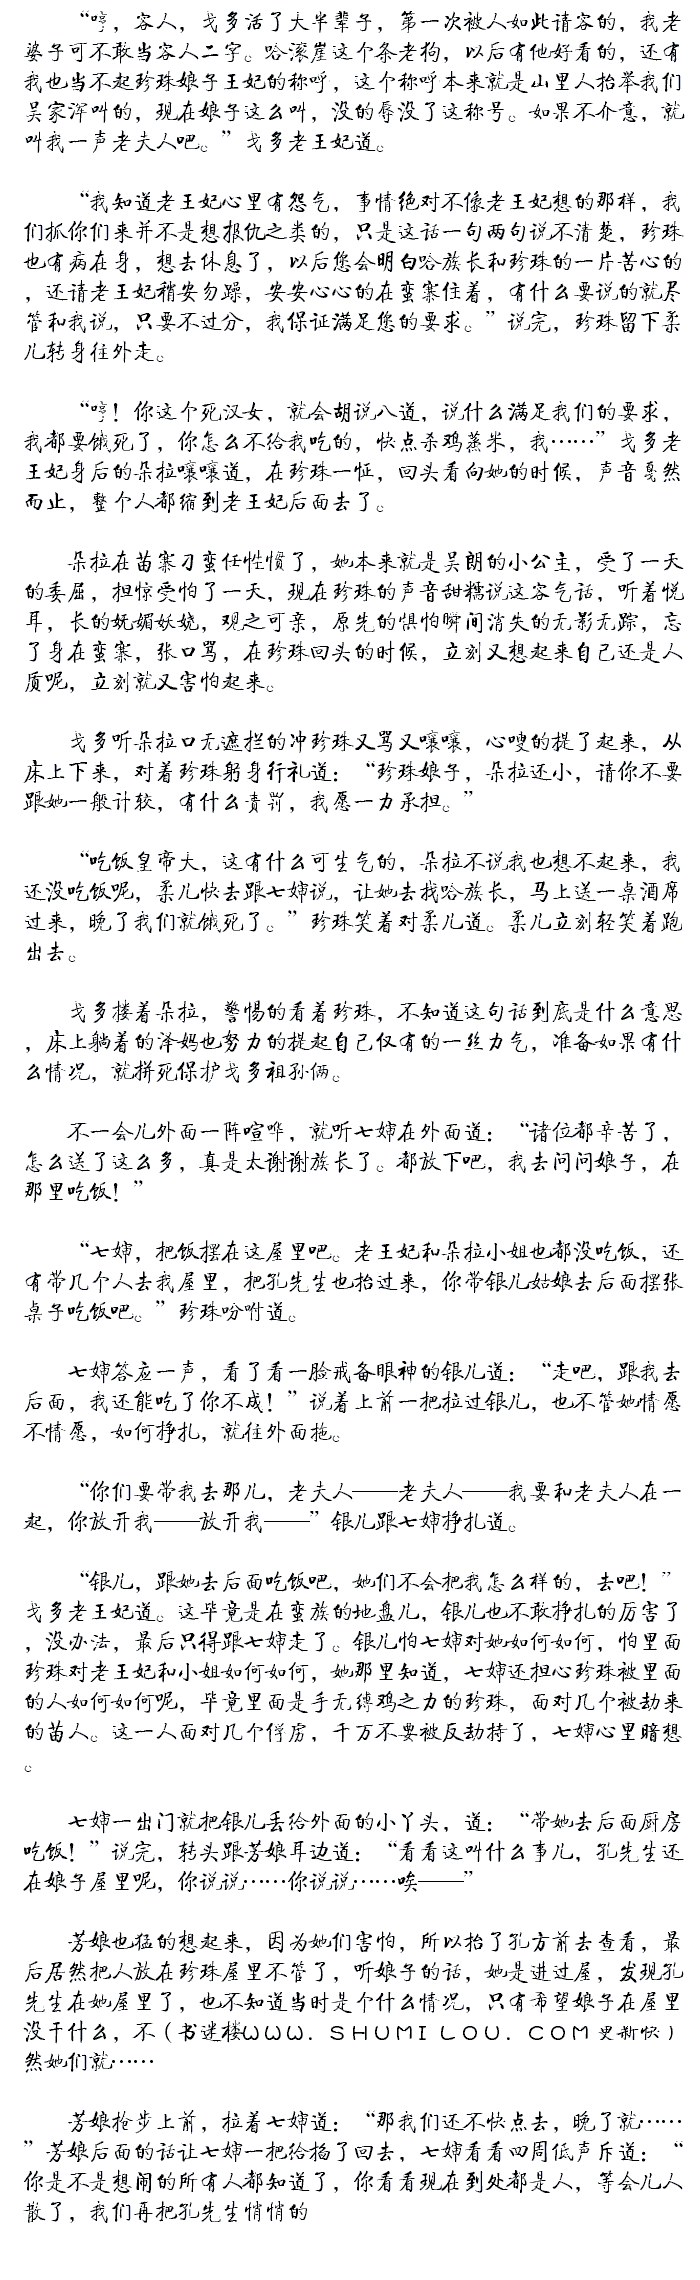 “哼，客人，戈多活了大半辈子，第一次被人如此请客的，我老
婆子可不敢当客人二字。哈滚崖这个条老狗，以后有他好看的，还有
我也当不起珍珠娘子王妃的称呼，这个称呼本来就是山里人抬举我们
吴家浑叫的，现在娘子这么叫，没的辱没了这称号。如果不介意，就
叫我一声老夫人吧。”戈多老王妃道。
“我知道老王妃心里有怨气，事情绝对不像老王妃想的那样，我
们抓你们来并不是想报仇之类的，只是这话一句两句说不清楚，珍珠
也有病在身，想去休息了，以后您会明白哈族长和珍珠的一片苦心的
，还请老王妃稍安勿躁，安安心心的在蛮寨住着，有什么要说的就尽
管和我说，只要不过分，我保证满足您的要求。”说完，珍珠留下柔
儿转身往外走。
“哼！你这个死汉女，就会胡说八道，说什么满足我们的要求，
我都要饿死了，你怎么不给我吃的，快点杀鸡蒸米，我……”戈多老
王妃身后的朵拉嚷嚷道，在珍珠一怔，回头看向她的时候，声音戛然
而止，整个人都缩到老王妃后面去了。
朵拉在苗寨刁蛮任性惯了，她本来就是吴朗的小公主，受了一天
的委屈，担惊受怕了一天，现在珍珠的声音甜糯说这客气话，听着悦
耳，长的妩媚妖娆，观之可亲，原先的惧怕瞬间消失的无影无踪，忘
了身在蛮寨，张口骂，在珍珠回头的时候，立刻又想起来自己还是人
质呢，立刻就又害怕起来。
戈多听朵拉口无遮拦的冲珍珠又骂又嚷嚷，心嗖的提了起来，从
床上下来，对着珍珠躬身行礼道：“珍珠娘子，朵拉还小，请你不要
跟她一般计较，有什么责罚，我愿一力承担。”
“吃饭皇帝大，这有什么可生气的，朵拉不说我也想不起来，我
还没吃饭呢，柔儿快去跟七婶说，让她去找哈族长，马上送一桌酒席
过来，晚了我们就饿死了。”珍珠笑着对柔儿道。柔儿立刻轻笑着跑
出去。
戈多搂着朵拉，警惕的看着珍珠，不知道这句话到底是什么意思
，床上躺着的泽妈也努力的提起自己仅有的一丝力气，准备如果有什
么情况，就拼死保护戈多祖孙俩。
不一会儿外面一阵喧哗，就听七婶在外面道：“诸位都辛苦了，
怎么送了这么多，真是太谢谢族长了。都放下吧，我去问问娘子，在
那里吃饭！”
“七婶，把饭摆在这屋里吧。老王妃和朵拉小姐也都没吃饭，还
有带几个人去我屋里，把孔先生也抬过来，你带银儿姑娘去后面摆张
桌子吃饭吧。”珍珠吩咐道。
七婶答应一声，看了看一脸戒备眼神的银儿道：“走吧，跟我去
后面，我还能吃了你不成！”说着上前一把拉过银儿，也不管她情愿
不情愿，如何挣扎，就往外面拖。
“你们要带我去那儿，老夫人——老夫人——我要和老夫人在一
起，你放开我——放开我——”银儿跟七婶挣扎道。
“银儿，跟她去后面吃饭吧，她们不会把我怎么样的，去吧！”
戈多老王妃道。这毕竟是在蛮族的地盘儿，银儿也不敢挣扎的厉害了
，没办法，最后只得跟七婶走了。银儿怕七婶对她如何如何，怕里面
珍珠对老王妃和小姐如何如何，她那里知道，七婶还担心珍珠被里面
的人如何如何呢，毕竟里面是手无缚鸡之力的珍珠，面对几个被劫来
的苗人。这一人面对几个俘虏，千万不要被反劫持了，七婶心里暗想
。
七婶一出门就把银儿丢给外面的小丫头，道：“带她去后面厨房
吃饭！”说完，转头跟芳娘耳边道：“看看这叫什么事儿，孔先生还
在娘子屋里呢，你说说……你说说……唉——”
芳娘也猛的想起来，因为她们害怕，所以抬了孔方前去查看，最
后居然把人放在珍珠屋里不管了，听娘子的话，她是进过屋，发现孔
先生在她屋里了，也不知道当时是个什么情况，只有希望娘子在屋里
没干什么，不（书迷楼ＷＷＷ．ＳＨＵＭＩＬＯＵ．ＣＯＭ更新快）
然她们就……
芳娘抢步上前，拉着七婶道：“那我们还不快点去，晚了就……
”芳娘后面的话让七婶一把给捂了回去，七婶看看四周低声斥道：“
你是不是想闹的所有人都知道了，你看看现在到处都是人，等会儿人
散了，我们再把孔先生悄悄的